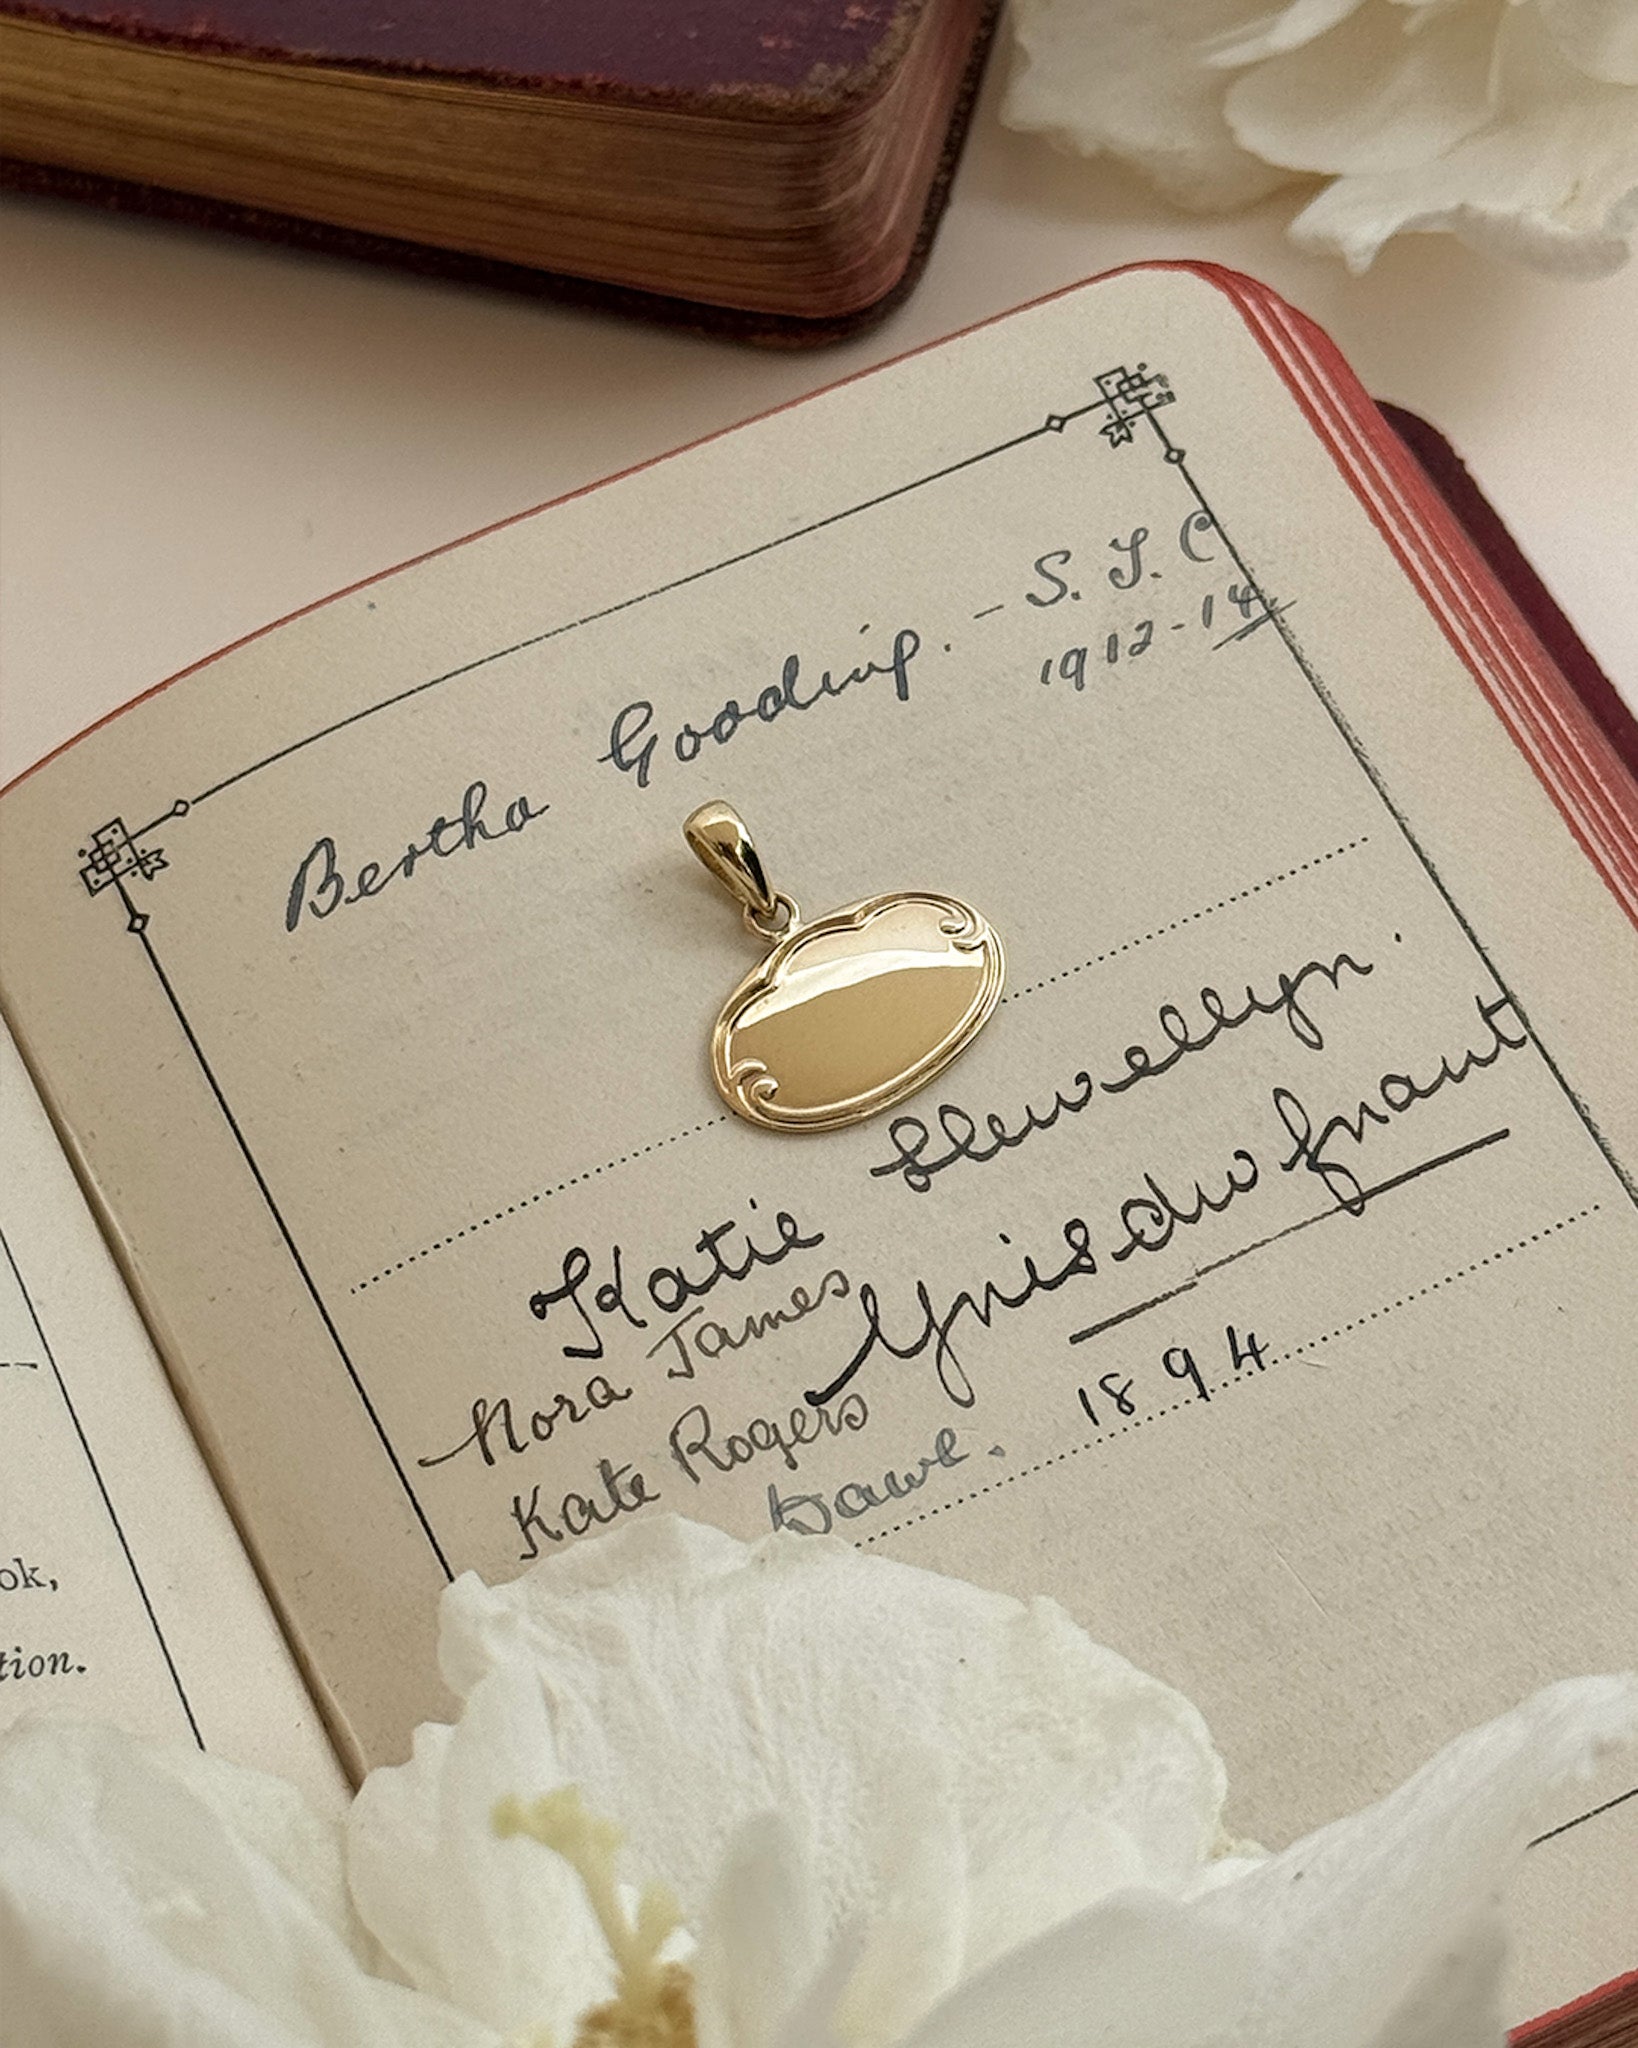 Bertha Gooding. - S. T. C
1912-14
Katie Llewellyn.
Nora James Ynisdw Gnant
Kate Rogers
Dawe. 1894
ok,
tion.